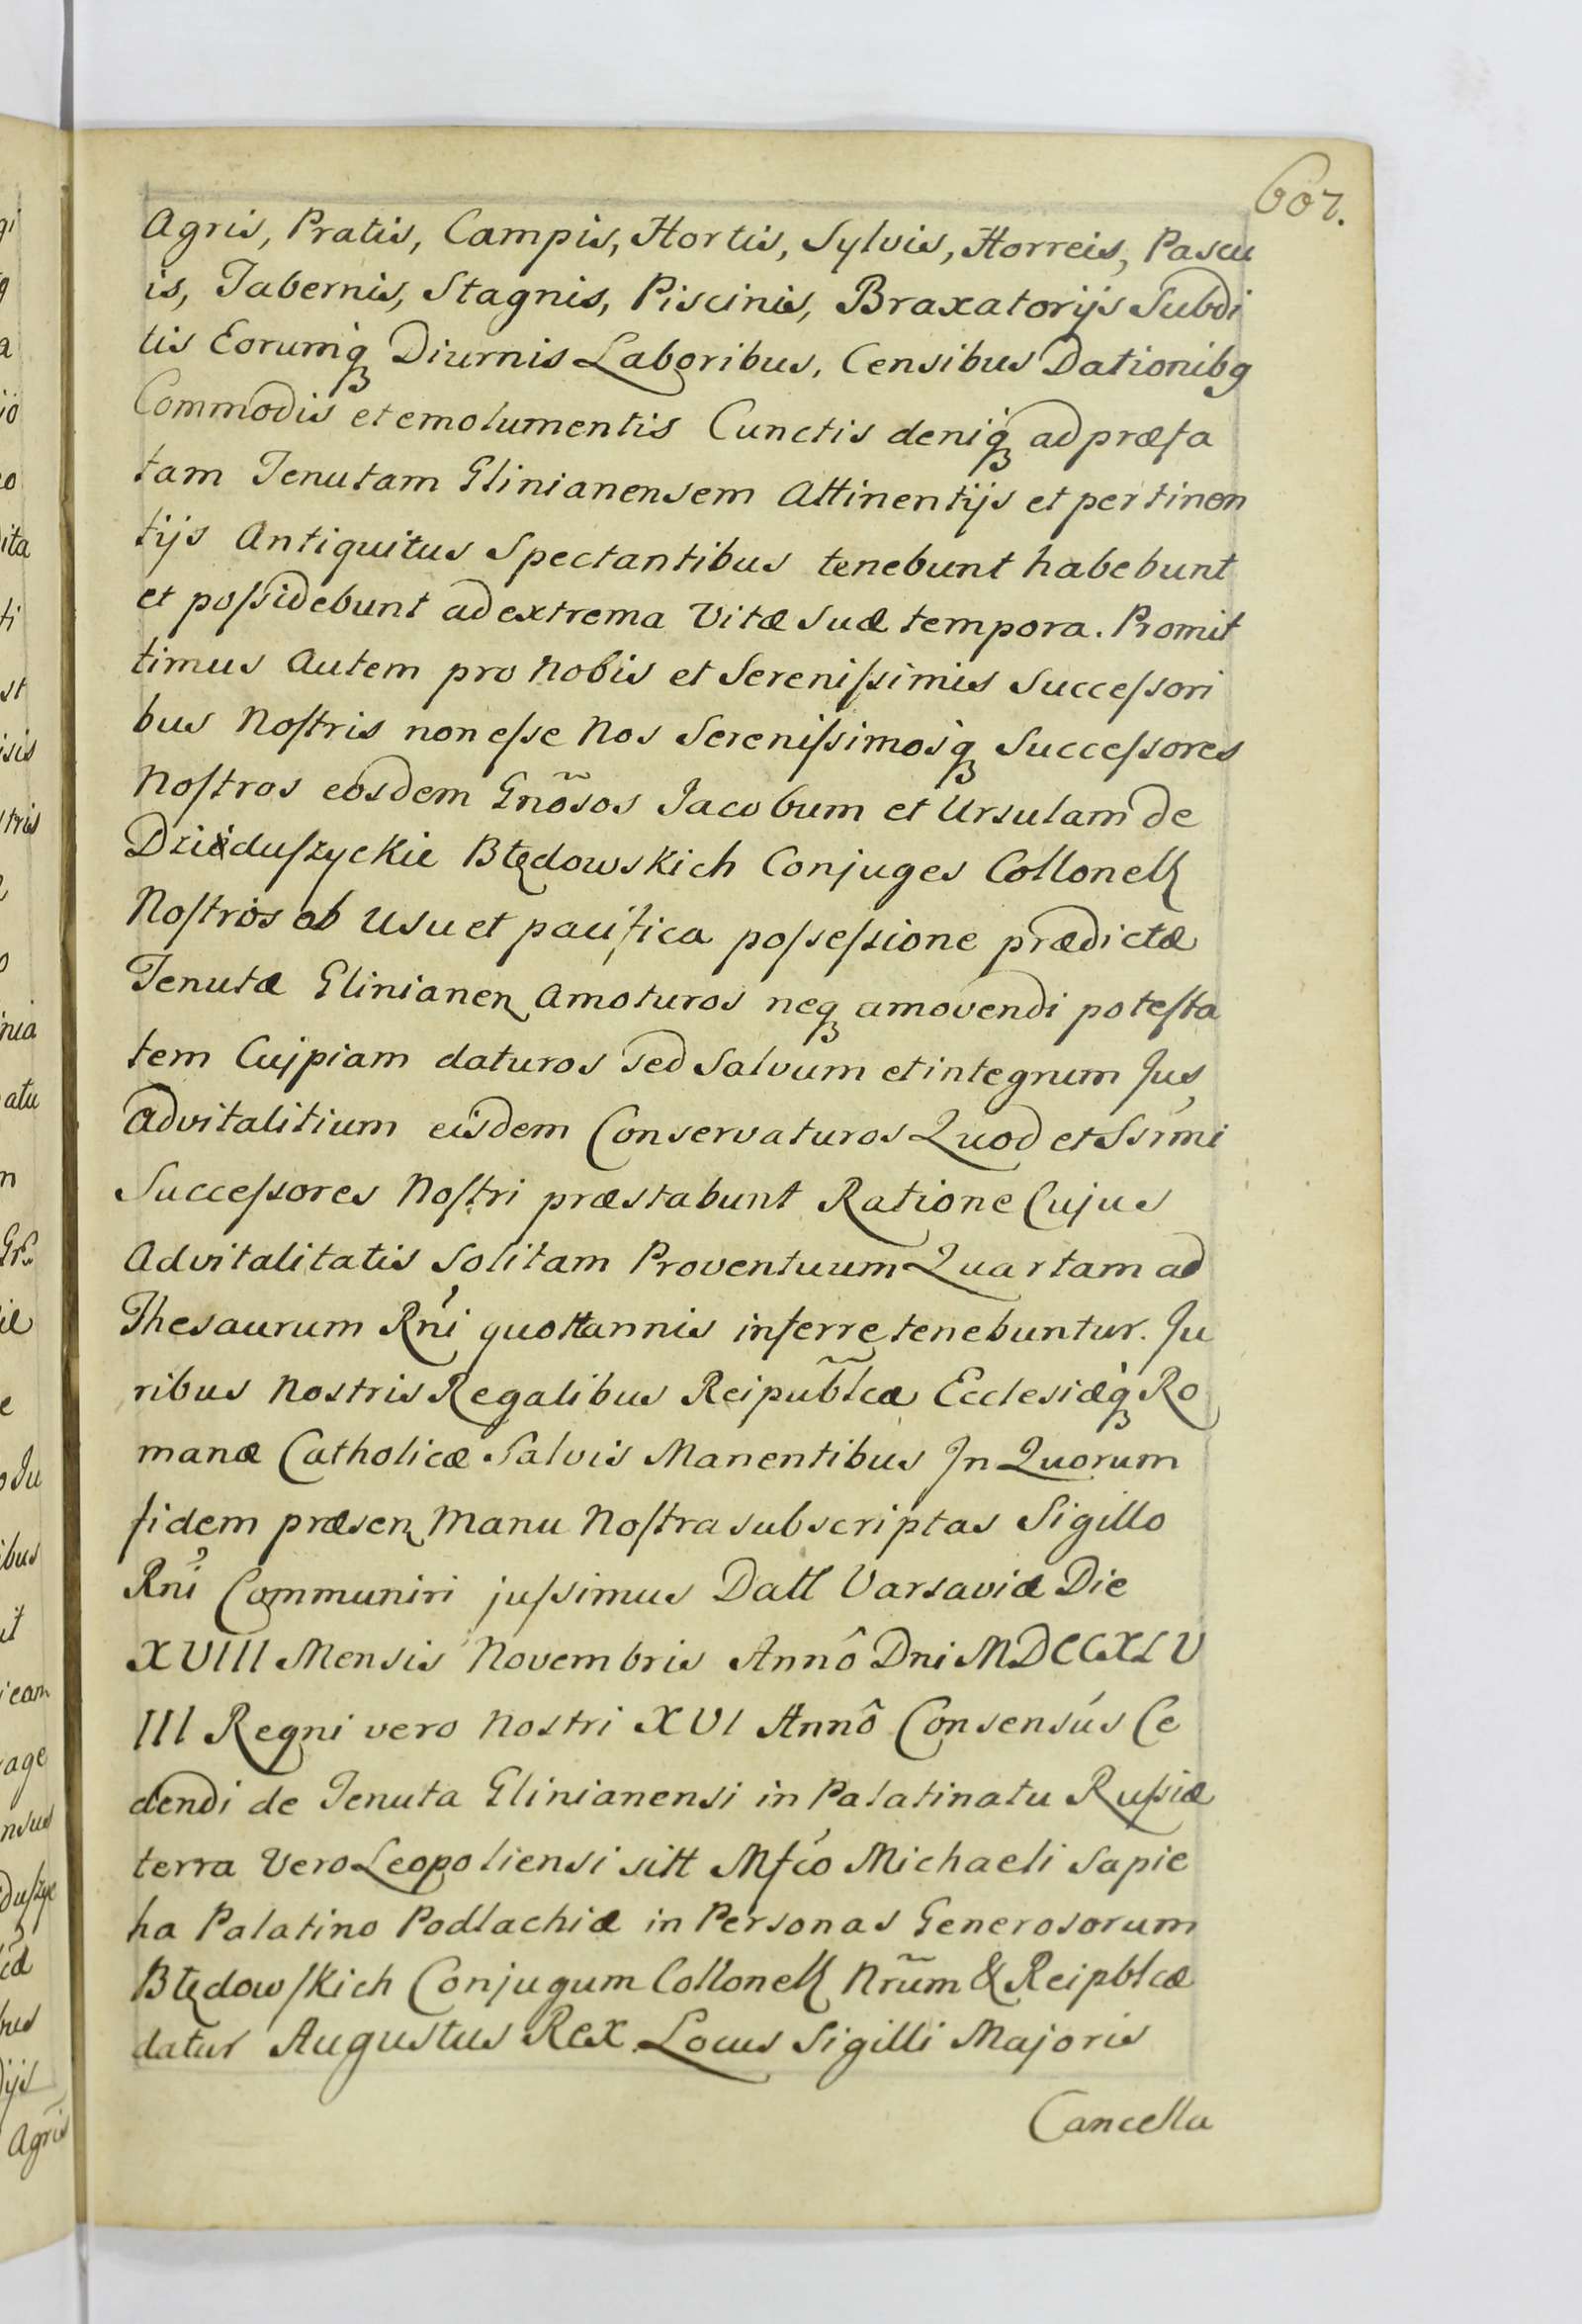 607.
Agris, Pratis, Campis, Hortis, Sylvis, Horreis, Pascu
is, Tabernis, Stagnis, Piscinis, Braxatorijs Subdi
tis Eorumq; Diurnis Laboribus, Censibus Dationibq
Commodis et emolumentis Cunctis deniq; ad præfa
tam Tenutam Glinianensem Attinentijs et pertinen
tijs Antiquitus Spectantibus tenebunt habebunt
et poſsidebunt ad extrema Vitæ Suæ tempora. Promit
timus Autem pro Nobis et Sereniſsimis Succeſsori
bus Noſtris non eſse Nos Sereniſsimosq; Succeſsores
Noſtros eosdem Gnõsos Jacobum et Ursulam de
Dzieduſzyckie Błędowskich Conjuges Collonell
Noſtros ab Usu et pacifica poſseſsione prædictæ
Tenutæ Glinianen Amoturos neq; amovendi poteſta
tem Cujpiam daturos sed Salvum et integrum Jus,
Advitalitium eisdem Conservaturos Quod et Ssimi
Succeſsores Noſtri præstabunt Ratione Cujus
Advitalitatis Solitam Proventuum Quartam ad
Thesaurum Rni quottannis inferre tenebuntur. Ju
ribus Nostris Regalibus Reipub̃lcæ Ecclesiæq; Ro
manæ Catholicæ Salvis Manentibus Jn Quorum
fidem præsen Manu Noſtra subscriptas Sigillo
Rni Communiri juſsimus Datt Varsaviæ Die
XVIII Mensis Novembris Annô Dni MDCCXLV
III Regni vero Nostri XVI Annô Consensús Ce
dendi de Tenuta Glinianensi in Palatinatu Ruſsiæ
terra Vero Leopoliensi sitt Mfco Michaeli Sapie
ha Palatino Podlachiæ in Personas Generosorum
Błędowſkich Conjugum Collonell Nrũm & Reipblcæ
datur Augustus Rex Locus Sigilli Majoris
Cancella